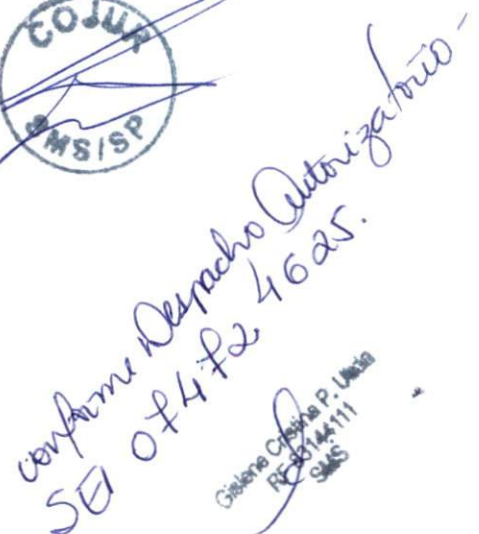 COJUR
SMS/SP
conforme Despacho Autorizatório -
SEI 07472 4625.
Gislene Cristina P.
SMS